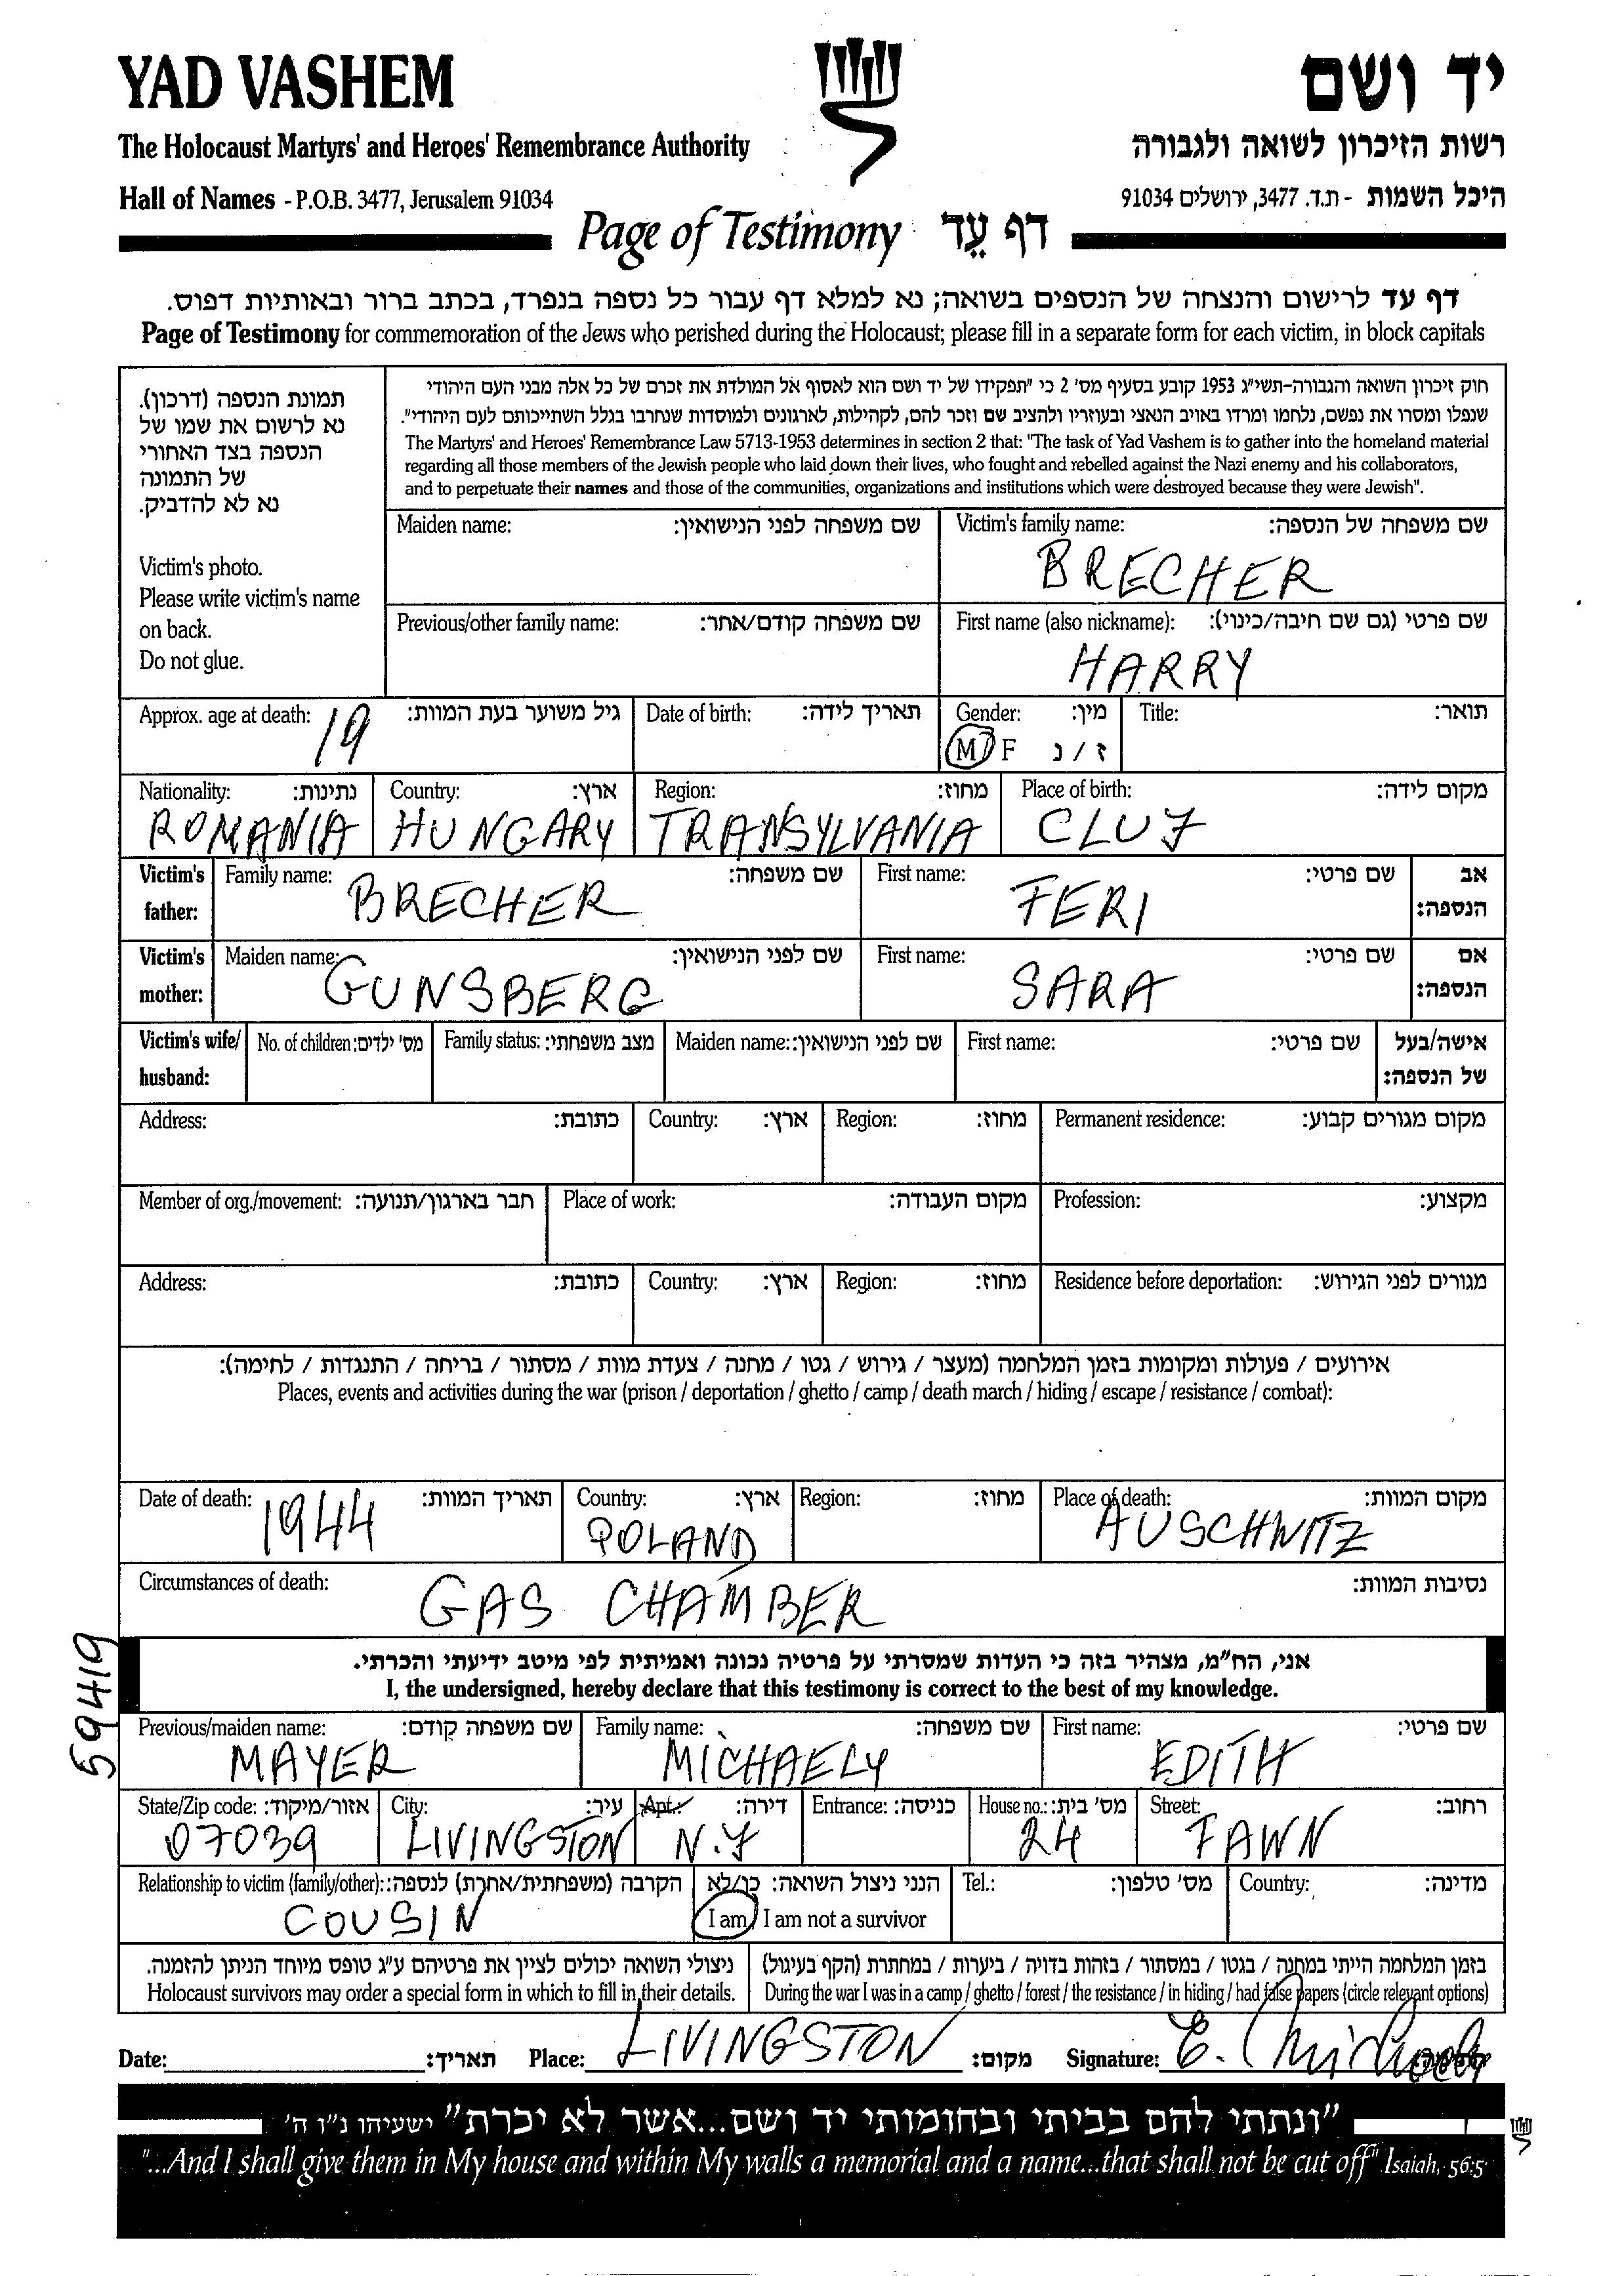 YAD VASHEM
יד ושם
The Holocaust Martyrs' and Heroes' Remembrance Authority
רשות הזיכרון לשואה ולגבורה
Hall of Names - P.O.B. 3477, Jerusalem 91034
היכל השמות - ת.ד. 3477, ירושלים 91034
Page of Testimony דף עֵד
דף עד לרישום והנצחה של הנספים בשואה; נא למלא דף עבור כל נספה בנפרד, בכתב ברור ובאותיות דפוס.
Page of Testimony for commemoration of the Jews who perished during the Holocaust; please fill in a separate form for each victim, in block capitals
תמונת הנספה (דרכון).
נא לרשום את שמו של
הנספה בצד האחורי
של התמונה
נא לא להדביק.
Victim's photo.
Please write victim's name
on back.
Do not glue.
חוק זיכרון השואה והגבורה-תשי"ג 1953 קובע בסעיף מס' 2 כי "תפקידו של יד ושם הוא לאסוף אל המולדת את זכרם של כל אלה מבני העם היהודי
שנפלו ומסרו את נפשם, נלחמו ומרדו באויב הנאצי ובעוזריו ולהציב שם וזכר להם, לקהילות, לארגונים ולמוסדות שנחרבו בגלל השתייכותם לעם היהודי".
The Martyrs' and Heroes' Remembrance Law 5713-1953 determines in section 2 that: "The task of Yad Vashem is to gather into the homeland material
regarding all those members of the Jewish people who laid down their lives, who fought and rebelled against the Nazi enemy and his collaborators,
and to perpetuate their names and those of the communities, organizations and institutions which were destroyed because they were Jewish".
Maiden name: שם משפחה לפני הנישואין:
Victim's family name: שם משפחה של הנספה:
BRECHER
Previous/other family name: שם משפחה קודם/אחר:
First name (also nickname): שם פרטי (גם שם חיבה/כינוי):
HARRY
Approx. age at death: גיל משוער בעת המוות:
19
Date of birth: תאריך לידה:
Gender: מין:
M / F ז / נ
Title: תואר:
Nationality: נתינות:
ROMANIA
Country: ארץ:
HUNGARY
Region: מחוז:
TRANSYLVANIA
Place of birth: מקום לידה:
CLUJ
Victim's father:
Family name: שם משפחה:
BRECHER
First name: שם פרטי:
FERI
אב הנספה:
Victim's mother:
Maiden name: שם לפני הנישואין:
GUNSBERG
First name: שם פרטי:
SARA
אם הנספה:
Victim's wife/ husband:
No. of children: מס' ילדים:
Family status: מצב משפחתי:
Maiden name: שם לפני הנישואין:
First name: שם פרטי:
אישה/בעל של הנספה:
Address: כתובת:
Country: ארץ:
Region: מחוז:
Permanent residence: מקום מגורים קבוע:
Member of org./movement: חבר בארגון/תנועה:
Place of work: מקום העבודה:
Profession: מקצוע:
Address: כתובת:
Country: ארץ:
Region: מחוז:
Residence before deportation: מגורים לפני הגירוש:
אירועים / פעולות ומקומות בזמן המלחמה (מעצר / גירוש / גטו / מחנה / צעדת מוות / מסתור / בריחה / התנגדות / לחימה):
Places, events and activities during the war (prison / deportation / ghetto / camp / death march / hiding / escape / resistance / combat):
Date of death: תאריך המוות:
1944
Country: ארץ:
POLAND
Region: מחוז:
Place of death: מקום המוות:
AUSCHWITZ
Circumstances of death: נסיבות המוות:
GAS CHAMBER
59419
אני, הח"מ, מצהיר בזה כי העדות שמסרתי על פרטיה נכונה ואמיתית לפי מיטב ידיעתי והכרתי.
I, the undersigned, hereby declare that this testimony is correct to the best of my knowledge.
Previous/maiden name: שם משפחה קודם:
MAYER
Family name: שם משפחה:
MICHAELY
First name: שם פרטי:
EDITH
State/Zip code: אזור/מיקוד:
07039
City: עיר:
LIVINGSTON
Apt.: דירה:
N.J
Entrance: כניסה:
House no.: מס' בית:
24
Street: רחוב:
FAWN
Relationship to victim (family/other): הקרבה (משפחתית/אחרת) לנספה:
COUSIN
הנני ניצול השואה: כן/לא
I am / I am not a survivor
Tel.: מס' טלפון:
Country: מדינה:
ניצולי השואה יכולים לציין את פרטיהם ע"ג טופס מיוחד הניתן להזמנה.
Holocaust survivors may order a special form in which to fill in their details.
בזמן המלחמה הייתי במחנה / בגטו / במסתור / בזהות בדויה / ביערות / במחתרת (הקף בעיגול)
During the war I was in a camp / ghetto / forest / the resistance / in hiding / had false papers (circle relevant options)
Date: תאריך: Place: LIVINGSTON מקום: Signature: E. Michaely
"ונתתי להם בביתי ובחומותי יד ושם...אשר לא יכרת" ישעיהו נ"ו ה'
"...And I shall give them in My house and within My walls a memorial and a name...that shall not be cut off" Isaiah, 56:5